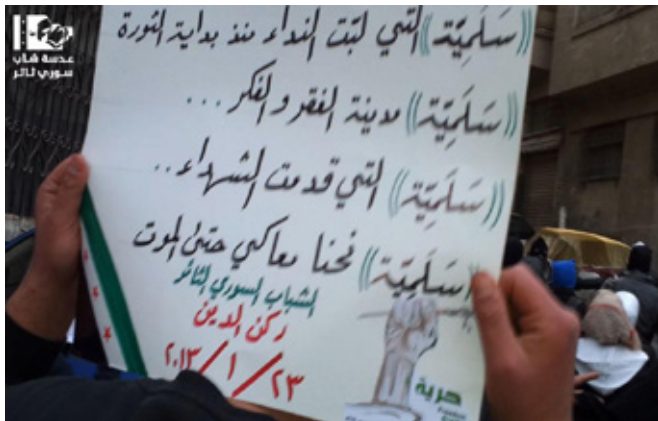 عدسة شاب
سوري ثائر
((سَلَمِيّة)) التي لبّت النداء منذ بداية الثورة
((سَلَمِيّة)) مدينة الفقر و الفكر ...
((سَلَمِيّة)) التي قدمت الشهداء ..
((سَلَمِيّة)) نحنا معاكي حتى الموت
الشباب السوري الثائر
ركن الدين
٢٣ / ١ / ٢٠١٣
حرية